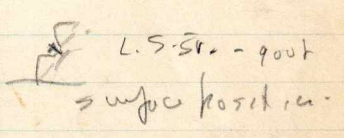 L. S-Sr. - gout
surface position.